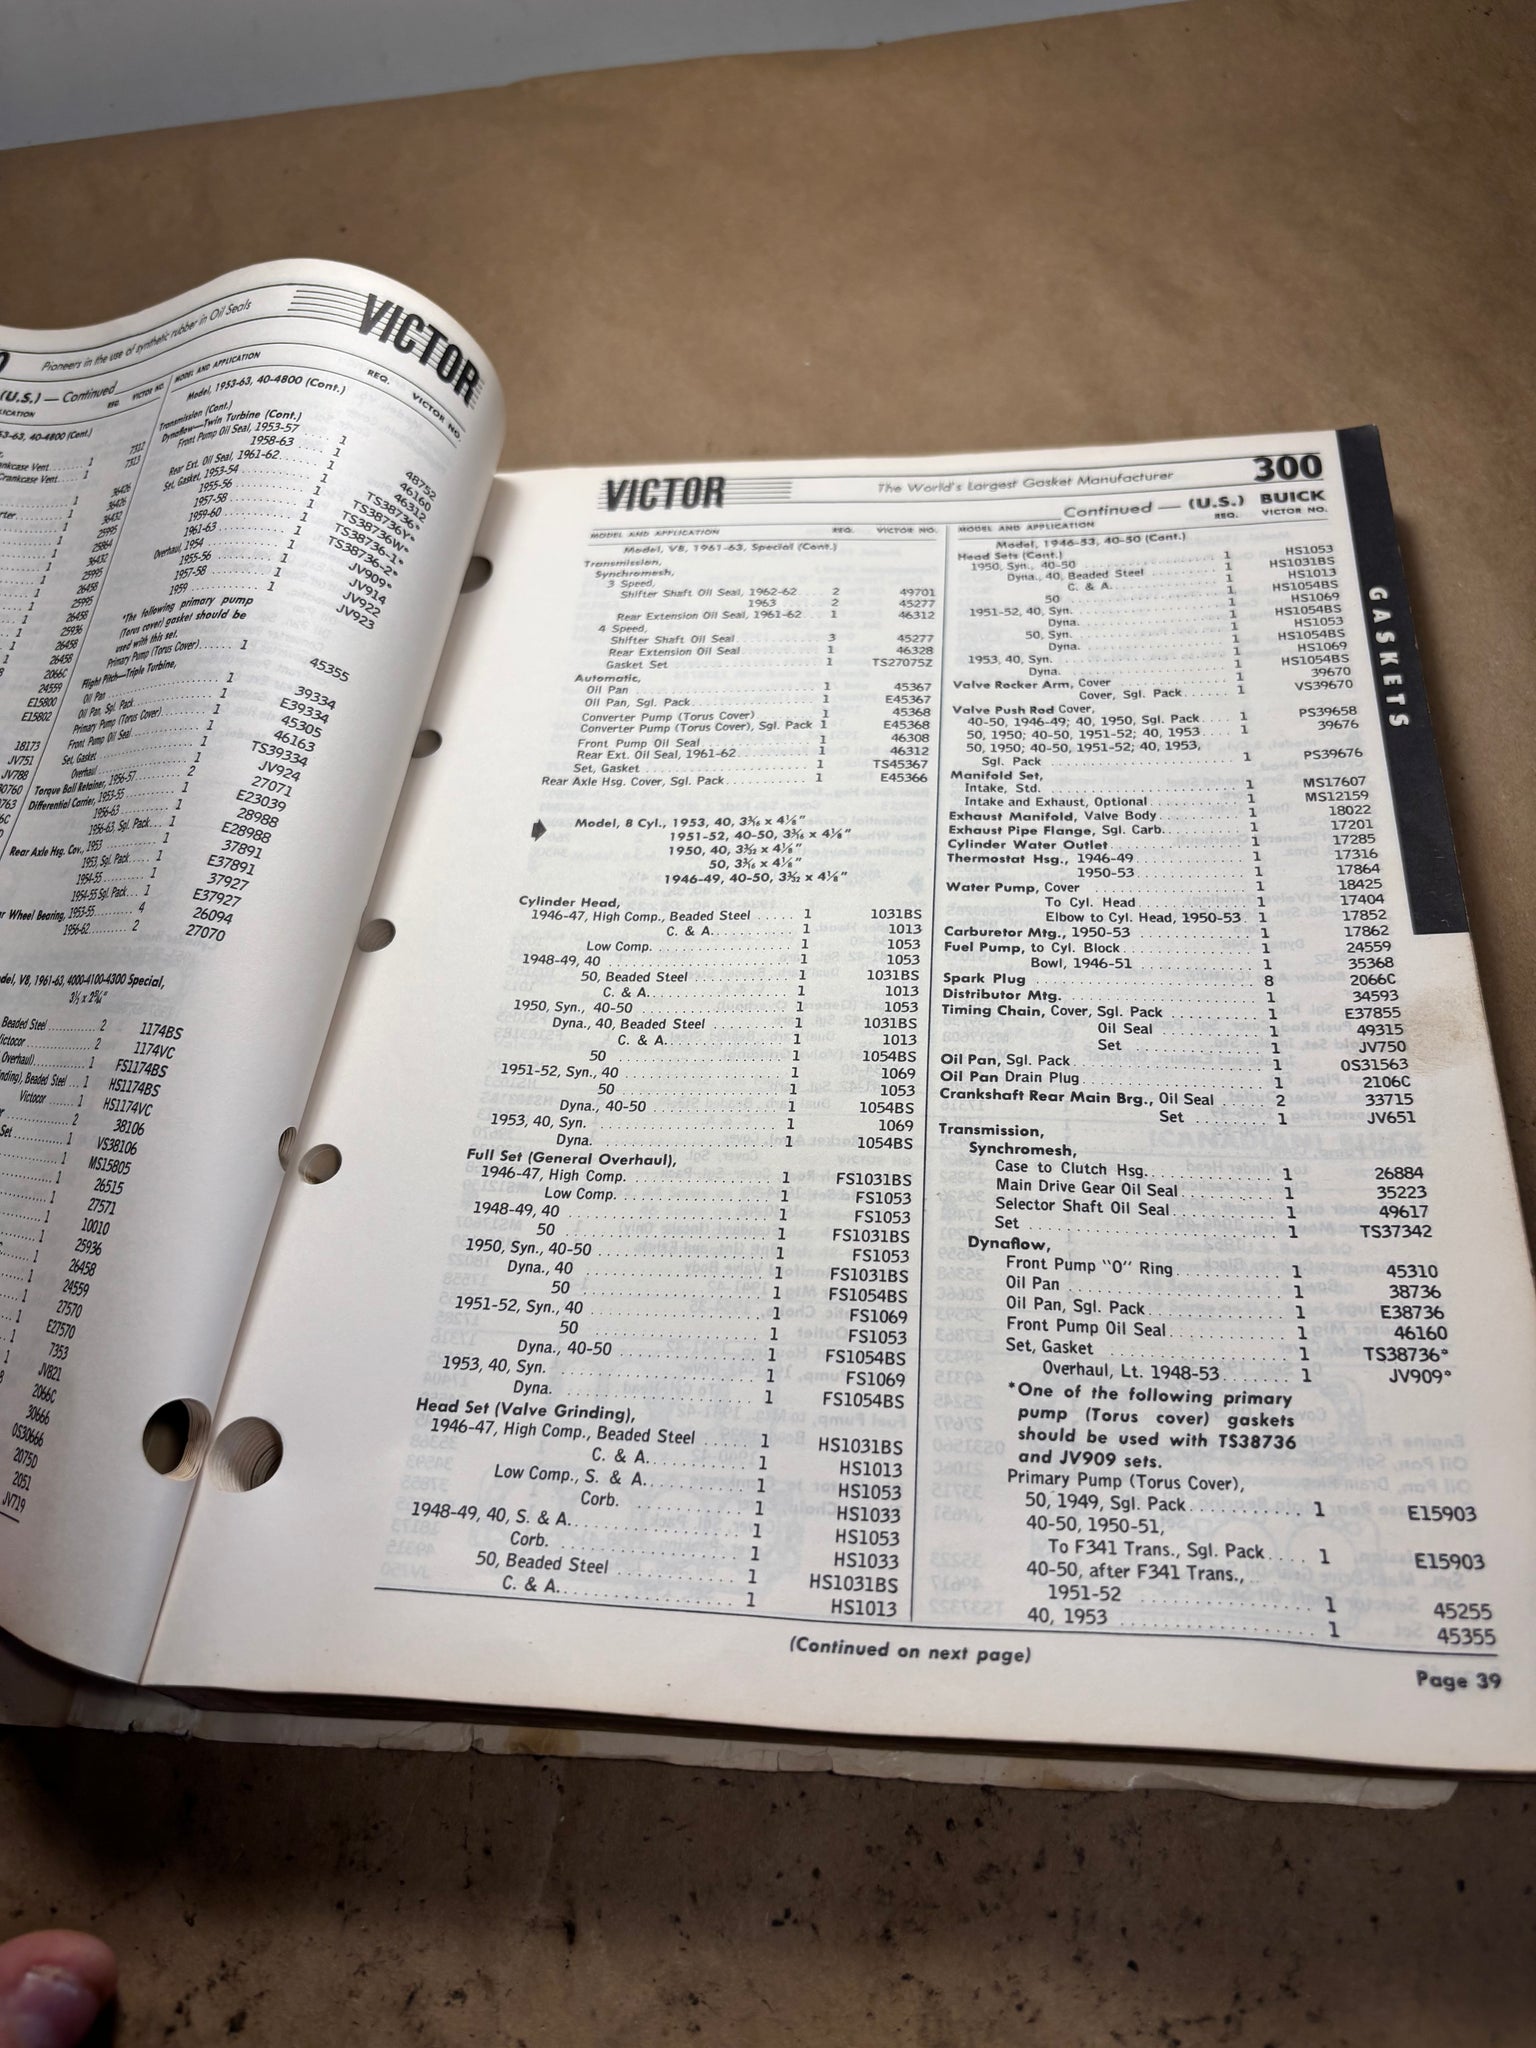 Pioneers in the use of synthetic rubber in Oil Seals
VICTOR
(U.S.) — Continued
REQ. VICTOR NO.
53-63, 40-4800 (Cont.)
Crankcase Vent 1 7313
1174BS
1174VC
FS1174BS
HS1174BS
HS1174VC
38106
VS38106
MS15805
26515
27571
10010
25936
26458
24559
27570
E27570
7353
JV821
2066C
30666
OS30666
2075D
2051
JV719
MODEL AND APPLICATION REQ. VICTOR NO.
Model, 1953-63, 40-4800 (Cont.)
Transmission (Cont.)
Dynaflow—Twin Turbine (Cont.)
Front Pump Oil Seal, 1953-57 1 48752
1958-63 1 46160
Rear Ext. Oil Seal, 1961-62 1 46312
Set, Gasket, 1953-54 1 TS38736*
1955-56 1 TS38736Y*
1957-58 1 TS38736W*
1959-60 1 TS38736-1*
1961-63 1 TS38736-2*
Overhaul, 1954 1 JV909*
1955-56 1 JV914
1957-58 1 JV922
1959 1 JV923
*The following primary pump
(Torus cover) gasket should be
used with this set.
Primary Pump (Torus Cover) 1 45355
Flight Pitch—Triple Turbine,
Oil Pan 1 39334
Oil Pan, Sgl. Pack 1 E39334
Primary Pump (Torus Cover) 1 45305
Front Pump Oil Seal 1 46163
Set, Gasket 1 TS39334
Overhaul 1 JV924
Torque Ball Retainer, 1956-57 2 27071
Differential Carrier, 1953-55 1 E23039
1956-63 1 28988
1956-63, Sgl. Pack 1 E28988
Rear Axle Hsg. Cov., 1953 1 37891
1953, Sgl. Pack 1 E37891
1954-55 1 37927
1954-55 Sgl. Pack 1 E37927
Wheel Bearing, 1953-55 4 26094
1956-62 2 27070
VICTOR
The World's Largest Gasket Manufacturer
300
Continued — (U.S.) BUICK
MODEL AND APPLICATION REQ. VICTOR NO.
Model, V8, 1961-63, Special (Cont.)
Transmission,
Synchromesh,
3 Speed,
Shifter Shaft Oil Seal, 1962-62 2 49701
1963 2 45277
Rear Extension Oil Seal, 1961-62 1 46312
4 Speed,
Shifter Shaft Oil Seal 3 45277
Rear Extension Oil Seal 1 46328
Gasket Set 1 TS27075Z
Automatic,
Oil Pan 1 45367
Oil Pan, Sgl. Pack 1 E45367
Converter Pump (Torus Cover) 1 45368
Converter Pump (Torus Cover), Sgl. Pack 1 E45368
Front Pump Oil Seal 1 46308
Rear Ext. Oil Seal, 1961-62 1 46312
Set, Gasket 1 TS45367
Rear Axle Hsg. Cover, Sgl. Pack 1 E45366
Model, 8 Cyl., 1953, 40, 3 3/16 x 4 1/8"
1951-52, 40-50, 3 3/16 x 4 1/8"
1950, 40, 3 3/32 x 4 1/8"
50, 3 3/16 x 4 1/8"
1946-49, 40-50, 3 3/32 x 4 1/8"
Cylinder Head,
1946-47, High Comp., Beaded Steel 1 1031BS
C. & A. 1 1013
Low Comp. 1 1053
1948-49, 40 1 1053
50, Beaded Steel 1 1031BS
C. & A. 1 1013
1950, Syn., 40-50 1 1053
Dyna., 40, Beaded Steel 1 1031BS
C. & A. 1 1013
50 1 1054BS
1951-52, Syn., 40 1 1069
50 1 1053
Dyna., 40-50 1 1054BS
1953, 40, Syn. 1 1069
Dyna. 1 1054BS
Full Set (General Overhaul),
1946-47, High Comp. 1 FS1031BS
Low Comp. 1 FS1053
1948-49, 40 1 FS1053
50 1 FS1031BS
1950, Syn., 40-50 1 FS1053
Dyna., 40 1 FS1031BS
50 1 FS1054BS
1951-52, Syn., 40 1 FS1069
50 1 FS1053
Dyna., 40-50 1 FS1054BS
1953, 40, Syn. 1 FS1069
Dyna. 1 FS1054BS
Head Set (Valve Grinding),
1946-47, High Comp., Beaded Steel 1 HS1031BS
C. & A. 1 HS1013
Low Comp., S. & A. 1 HS1053
Corb. 1 HS1033
1948-49, 40, S. & A. 1 HS1053
Corb. 1 HS1033
50, Beaded Steel 1 HS1031BS
C. & A. 1 HS1013
MODEL AND APPLICATION REQ. VICTOR NO.
Model, 1946-53, 40-50 (Cont.)
Head Sets (Cont.)
1950, Syn., 40-50 1 HS1053
Dyna., 40, Beaded Steel 1 HS1031BS
C. & A. 1 HS1013
50 1 HS1054BS
1951-52, 40, Syn. 1 HS1069
Dyna. 1 HS1054BS
50, Syn. 1 HS1053
Dyna. 1 HS1054BS
1953, 40, Syn. 1 HS1069
Dyna. 1 HS1054BS
Valve Rocker Arm, Cover 1 39670
Cover, Sgl. Pack 1 VS39670
Valve Push Rod Cover,
40-50, 1946-49; 40, 1950, Sgl. Pack 1 PS39658
50, 1950; 40-50, 1951-52; 40, 1953 1 39676
50, 1950; 40-50, 1951-52; 40, 1953,
Sgl. Pack 1 PS39676
Manifold Set,
Intake, Std. 1 MS17607
Intake and Exhaust, Optional 1 MS12159
Exhaust Manifold, Valve Body 1 18022
Exhaust Pipe Flange, Sgl. Carb. 1 17201
Cylinder Water Outlet 1 17285
Thermostat Hsg., 1946-49 1 17316
1950-53 1 17864
Water Pump, Cover 1 18425
To Cyl. Head 1 17404
Elbow to Cyl. Head, 1950-53 1 17852
Carburetor Mtg., 1950-53 1 17862
Fuel Pump, to Cyl. Block 1 24559
Bowl, 1946-51 1 35368
Spark Plug 8 2066C
Distributor Mtg. 1 34593
Timing Chain, Cover, Sgl. Pack 1 E37855
Oil Seal 1 49315
Set 1 JV750
Oil Pan, Sgl. Pack 1 OS31563
Oil Pan Drain Plug 1 2106C
Crankshaft Rear Main Brg., Oil Seal 2 33715
Set 1 JV651
Transmission,
Synchromesh,
Case to Clutch Hsg. 1 26884
Main Drive Gear Oil Seal 1 35223
Selector Shaft Oil Seal 1 49617
Set 1 TS37342
Dynaflow,
Front Pump "O" Ring 1 45310
Oil Pan 1 38736
Oil Pan, Sgl. Pack 1 E38736
Front Pump Oil Seal 1 46160
Set, Gasket 1 TS38736*
Overhaul, Lt. 1948-53 1 JV909*
*One of the following primary
pump (Torus cover) gaskets
should be used with TS38736
and JV909 sets.
Primary Pump (Torus Cover),
50, 1949, Sgl. Pack 1 E15903
40-50, 1950-51,
To F341 Trans., Sgl. Pack 1 E15903
40-50, after F341 Trans.,
1951-52 1 45255
40, 1953 1 45355
(Continued on next page)
Page 39
GASKETS